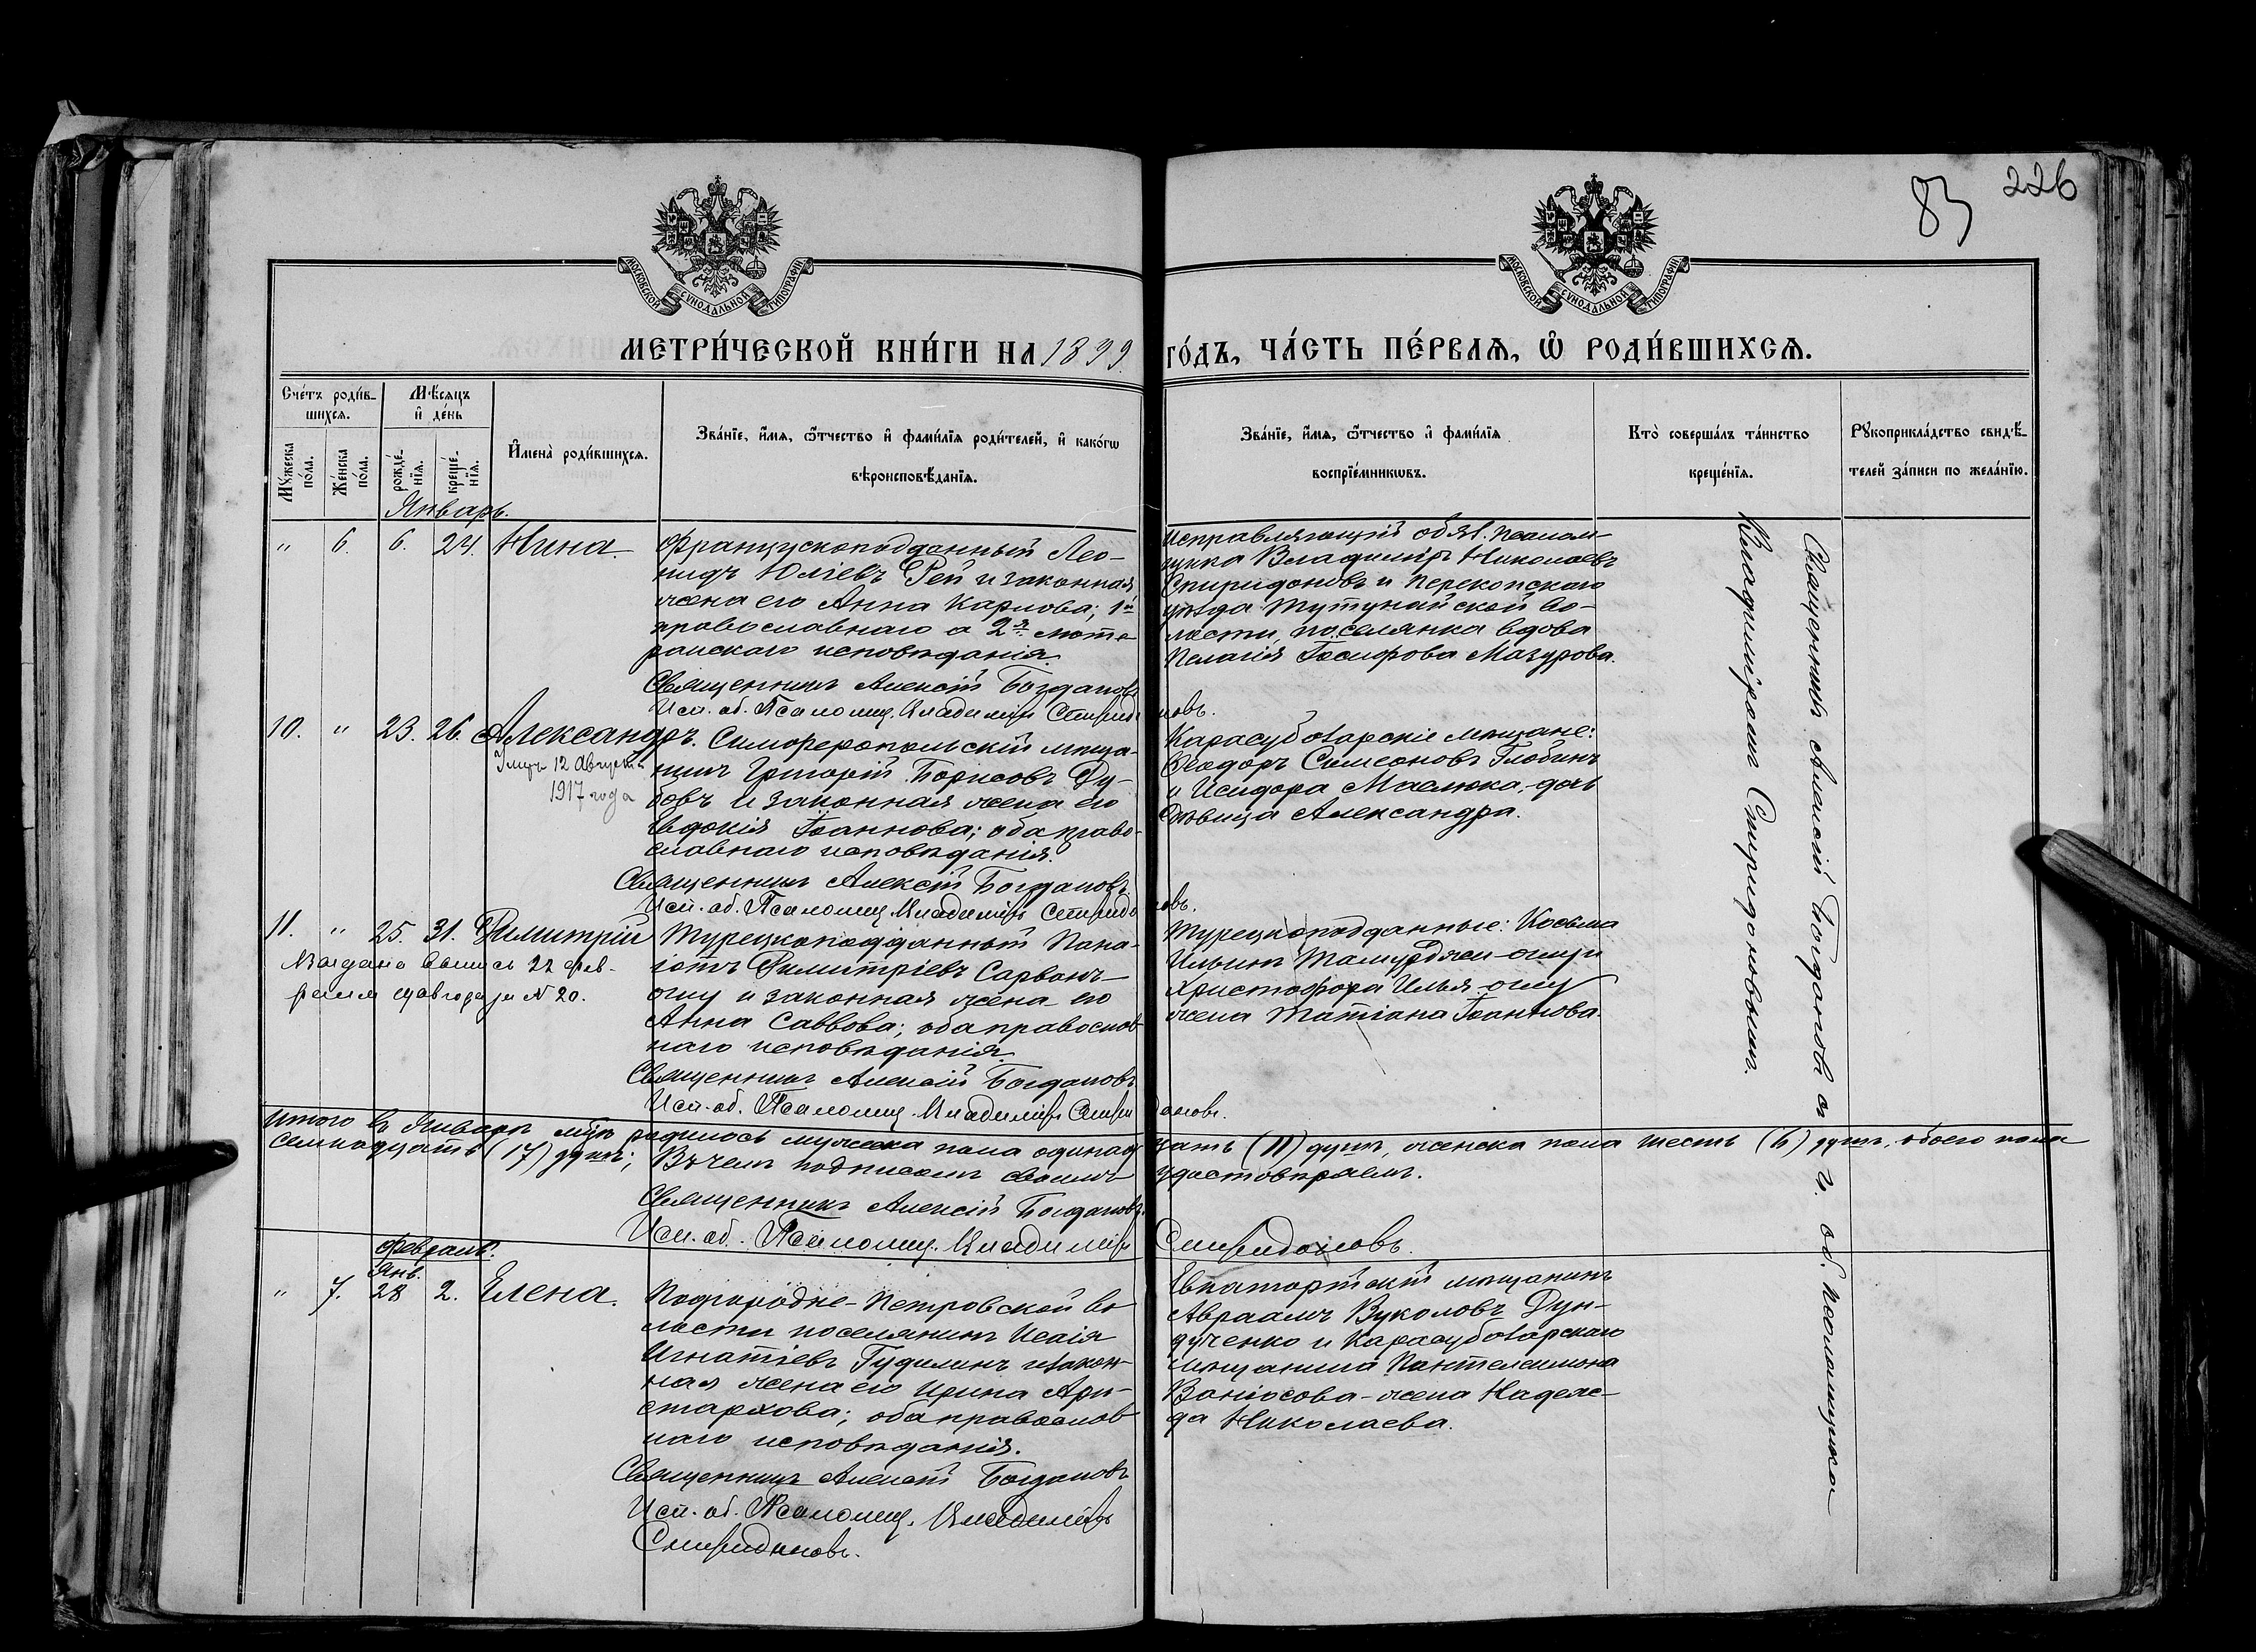 83
226
МОСКОВСКОЙ СѴНОДАЛЬНОЙ ТИПОГРАФІИ
МОСКОВСКОЙ СѴНОДАЛЬНОЙ ТИПОГРАФІИ
МЕТРИ́ЧЕСКОЙ КНИ́ГИ НА 1899. ГО́ДЪ, ЧА́СТЬ ПЕ́РВАѦ, Ѡ҆ РОДИ́ВШИХСѦ.
Сче́тъ роди́в-
шихсѧ.
Мѣ́сѧцъ
и҆ де́нь
Мꙋ́жеска
по́ла.
Же́нска
по́ла.
рожде́-
нїѧ.
креще́-
нїѧ.
И҆мена̀ роди́вшихсѧ.
Зва́нїе, и҆́мѧ, ѻ҆́тчество и҆ фами́лїѧ роди́телей, и҆ како́гѡ
вѣроисповѣ́данїѧ.
Зва́нїе, и҆́мѧ, ѻ҆́тчество и҆ фами́лїѧ
воспрїе́мникѡвъ.
Кто̀ соверша́лъ та́инство
креще́нїѧ.
Рꙋкоприкла́дство свидѣ́-
телей за́писи по жела́нїю.
Январь.
" 6. 6. 24. Нина.
Французскоподданный Лео-
нидъ Юліевъ Рей и законная
жена его Анна Карлова; 1й
православнаго а 2я люте-
ранскаго исповѣданія.
Священникъ Алексій Богдановъ
Исп. об. Псаломщ. Владиміръ Спиридоновъ.
Исправляющій обяз. псалом-
щика Владиміръ Николаевъ
Спиридоновъ и Перекопскаго
уѣзда Тотунайской во-
лости, поселянка вдова
Пелагія Іосифова Мазурова.
10. " 23. 26. Александръ.
12 Августа
1917 года
Симферопольскій мѣща-
нинъ Григорій Борисовъ Ду-
бовъ и законная жена его
Евдокія Іоаннова; оба право-
славнаго исповѣданія.
Священникъ Алексій Богдановъ.
Исп. об. Псаломщ. Владиміръ Спиридоновъ.
Карасубазарскіе мѣщане:
Ѳеодоръ Симеоновъ Глобинъ
и Исидора Маслюка, дочь
дѣвица Александра.
11. " 25. 31. Димитрій
Выдана выпись 22 фев-
раля сего года за № 20.
Турецкоподданный Пана-
іотъ Димитріевъ Сарванъ-
оглу и законная жена его
Анна Саввова; оба православ-
наго исповѣданія.
Священникъ Алексій Богдановъ
Исп. об. Псаломщ. Владиміръ Спиридоновъ.
Турецкоподданные: Косьма
Ильинъ Тамурджи-оглу и
Христофора Илья-оглу
жена Татіана Іоаннова.
Итого въ Январѣ мцѣ родилось мужеска пола одинадцать (11) душъ, женска пола шесть (6) душъ, обоего пола
семнадцать (17) душъ; Въ чемъ подписомъ своимъ удостовѣряемъ.
Священникъ Алексій Богдановъ.
Исп. об. Псаломщ. Владиміръ Спиридоновъ.
Февраль.
Янв.
" 7. 28 2. Елена.
Подгородне-Петровской во-
лости поселянинъ Исаія
Игнатіевъ Гудилинъ и закон-
ная жена его Ирина Ари-
стархова; оба православ-
наго исповѣданія.
Священникъ Алексій Богдановъ
Исп. об. Псаломщ. Владиміръ
Спиридоновъ.
Евпаторійскій мѣщанинъ
Авраамъ Вуколовъ Дун-
дученко и Карасубазарскаго
мѣщанина Пантелеимона
Ваніосова-жена Надеж-
да Николаева.
Священникъ Алексій Богдановъ съ и. об. псаломщика
Владиміромъ Спиридоновымъ.